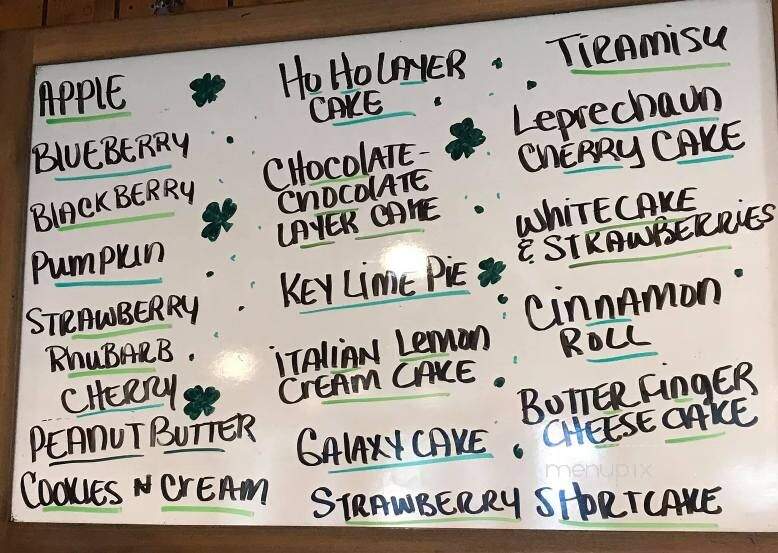 APPLE
BLUEBERRY
BLACKBERRY
PUMPKIN
STRAWBERRY
RHUBARB
CHERRY
PEANUT BUTTER
COOKIES N CREAM
HO HO LAYER
CAKE
CHOCOLATE-
CHOCOLATE
LAYER CAKE
KEY LIME PIE
ITALIAN LEMON
CREAM CAKE
GALAXY CAKE
STRAWBERRY SHORTCAKE
TIRAMISU
Leprechaun
CHERRY CAKE
WHITE CAKE
& STRAWBERRIES
CINNAMON
ROLL
BUTTERFINGER
CHEESECAKE
menupix